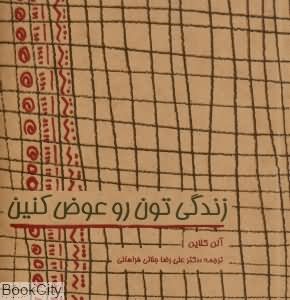 زندگی تون رو عوض کنین
آلن کلاین
ترجمه: دکتر علی رضا جلالی فراهانی
BookCity